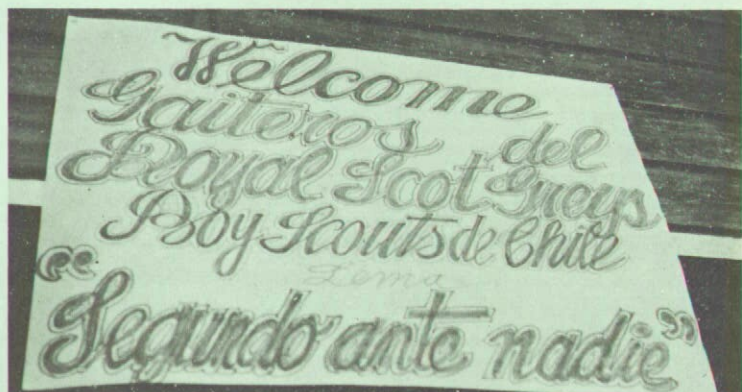 Welcome
Gaiteros del
Royal Scot Greys
Boy Scouts de Chile
Lema
"Segundo ante nadie"